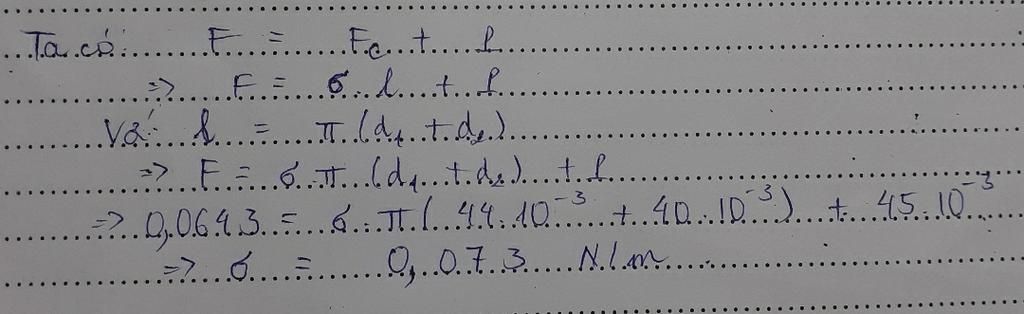 Ta có: F = Fc + P
=> F = σ. l + P
Và: l = π (d₁ + d₂)
=> F = σ. π. (d₁ + d₂) + P
=> 0,0643 = σ. π( 44.10⁻³ + 40.10⁻³) + 45.10⁻³
=> σ = 0,073 N/m